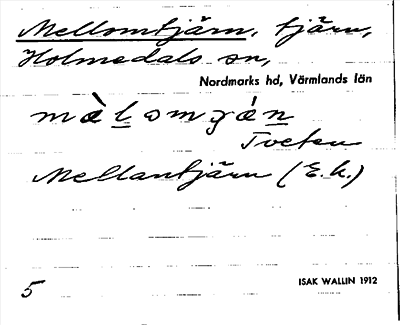 Mellomtjärn, tjärn,
Holmedals sn,
Nordmarks hd, Värmlands län
Tveten
Mellantjärn (E.k.)
5
ISAK WALLIN 1912